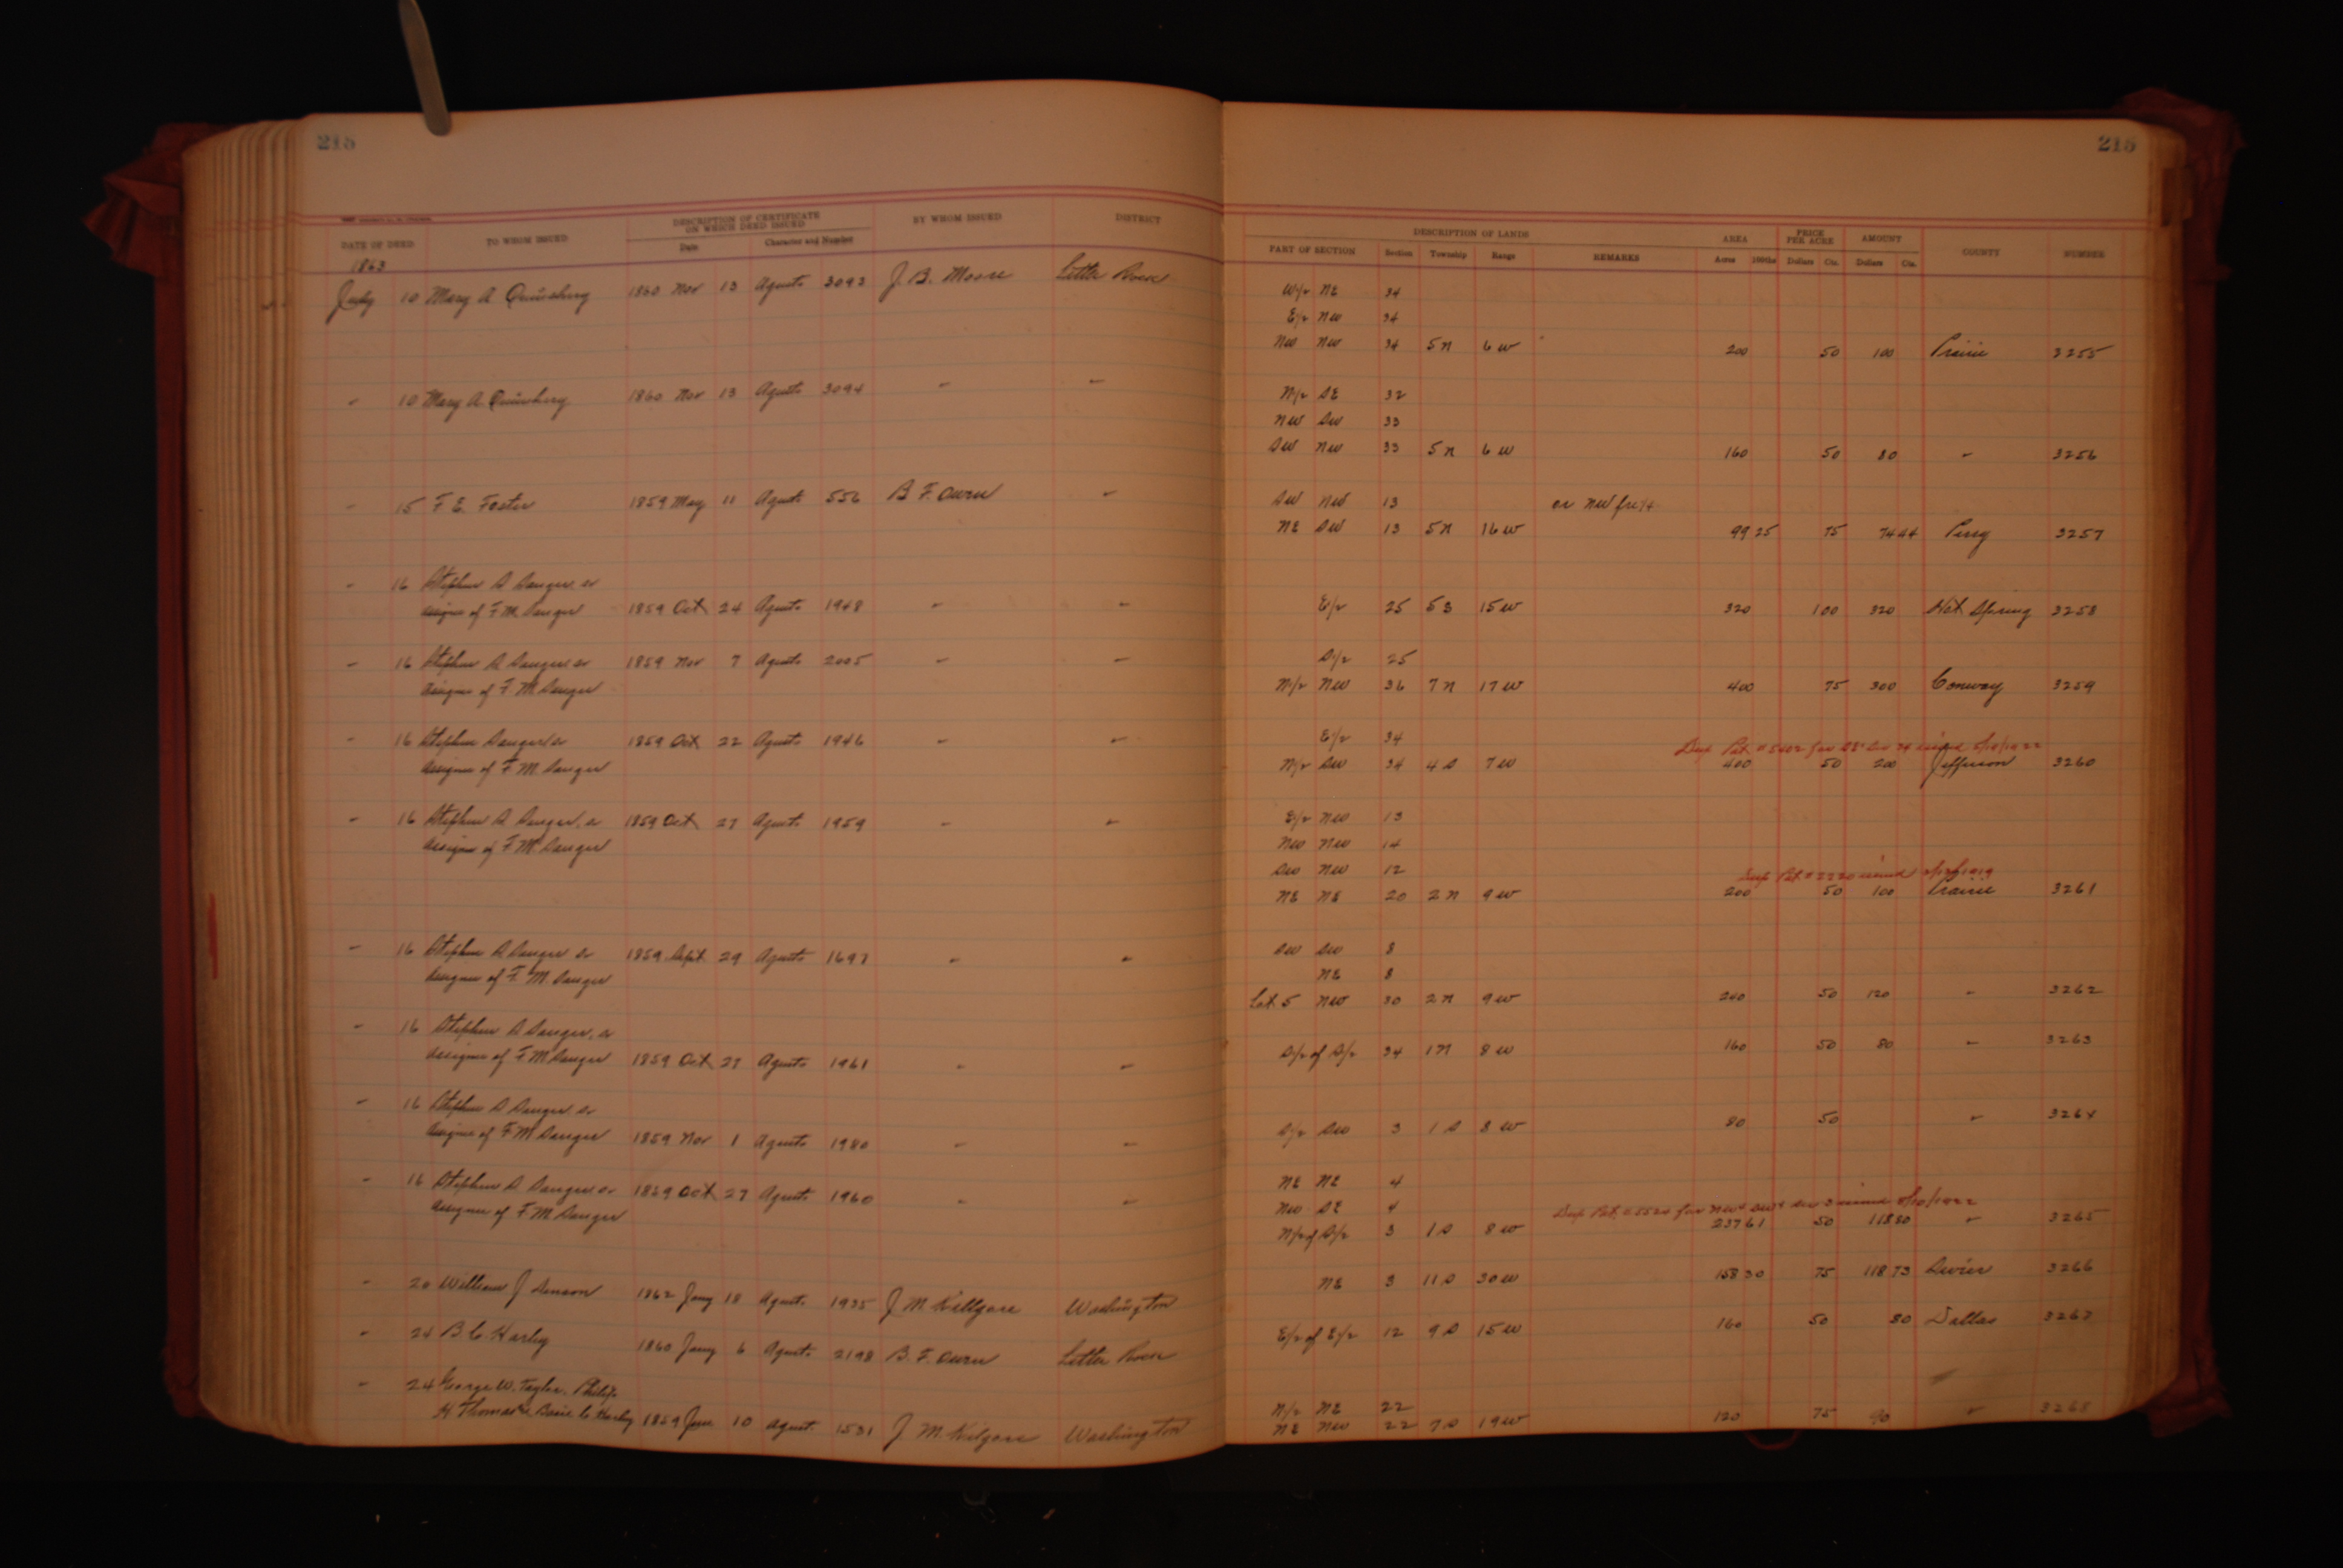 215 215
DATE OF DEED TO WHOM ISSUED DESCRIPTION OF CERTIFICATE ON WHICH DEED ISSUED Date Character and Number BY WHOM ISSUED DISTRICT DESCRIPTION OF LANDS PART OF SECTION Section Township Range REMARKS AREA Acres 100ths PRICE PER ACRE Dollars Cts. AMOUNT Dollars Cts. COUNTY NUMBER
1863
July 10 Mary A 1860 Nov 13 Agents 3093 J. B. Moore Little Rock W/2 NE 34
E/2 NW 34
NW NW 34 5 N 6 W 200 50 100 Prairie 3255
" 10 Mary A 1860 Nov 13 Agents 3094 " " N/2 SE 32
NW SW 33
SW NW 33 5 N 6 W 160 50 80 " 3256
" 15 F. E. Foster 1859 May 11 Agents 556 B. F. Owen " SW NW 13 or NW fr 1/4
NE SW 13 5 N 16 W 99 25 75 74 44 Perry 3257
" 16 Stephen S Sanger, or
assignee of F. M. Sanger 1859 Oct 24 Agents 1948 " " E/2 25 5 S 15 W 320 1 00 320 Hot Spring 3258
" 16 Stephen S Sanger or 1859 Nov 7 Agents 2005 " " S/2 25
assignee of F. M. Sanger N/2 NW 36 7 N 17 W 400 75 300 Conway 3259
" 16 Stephen Sanger or 1859 Oct 22 Agents 1946 " " E/2 34 issued 5/10/1922
assignee of F. M. Sanger N/2 SW 34 4 S 7 W 400 50 200 Jefferson 3260
" 16 Stephen S Sanger, or 1859 Oct 27 Agents 1959 " " E/2 NW 13
assignee of F. M. Sanger NW NW 14
SW NW 12 issued
NE NE 20 2 N 9 W 200 50 100 Prairie 3261
" 16 Stephen S Sanger or 1859 Sept 29 Agents 1697 " " SW SW 8
assignee of F. M. Sanger NE 8
Lot 5 NW 30 2 N 9 W 240 50 120 " 3262
" 16 Stephen S Sanger, or
assignee of F M Sanger 1859 Oct 27 Agents 1961 " " S/2 of S/2 34 1 N 8 W 160 50 80 " 3263
" 16 Stephen S Sanger or
assignee of F M Sanger 1859 Nov 1 Agents 1980 " " S/2 SW 3 1 S 8 W 80 50 " 3264
" 16 Stephen S Sanger or 1859 Oct 27 Agents 1960 " " NE NE 4
assignee of F M Sanger NW SE 4 issued 5/10/1922
N/2 of S/2 3 1 S 8 W 237 61 50 118 80 " 3265
" 20 William J Senson 1862 Jany 18 Agents 1935 J M Killgore Washington NE 3 11 S 30 W 158 30 75 118 73 Sevier 3266
" 24 B. C. Harley 1860 Jany 6 Agents 2198 B. F. Owen Little Rock E/2 of E/2 12 9 S 15 W 160 50 80 Dallas 3267
" 24 George W. Taylor, Philip N/2 NE 22
H Thomas & C. Harley 1859 June 10 Agent 1531 J. M. Kilgore Washington NE NW 22 7 S 19 W 120 75 90 " 3268